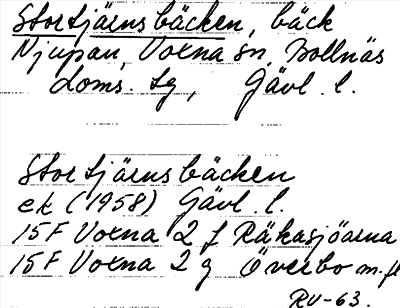 Stortjärnsbäcken, bäck
Njupan, Voxna sn, Bollnäs
doms. tg, Gävl. l.
Stortjärnsbäcken
ek (1958) Gävl. l.
15F Voxna 2 f Räkasjöarna
15F Voxna 2 g Överbo m.fl
RV-63.